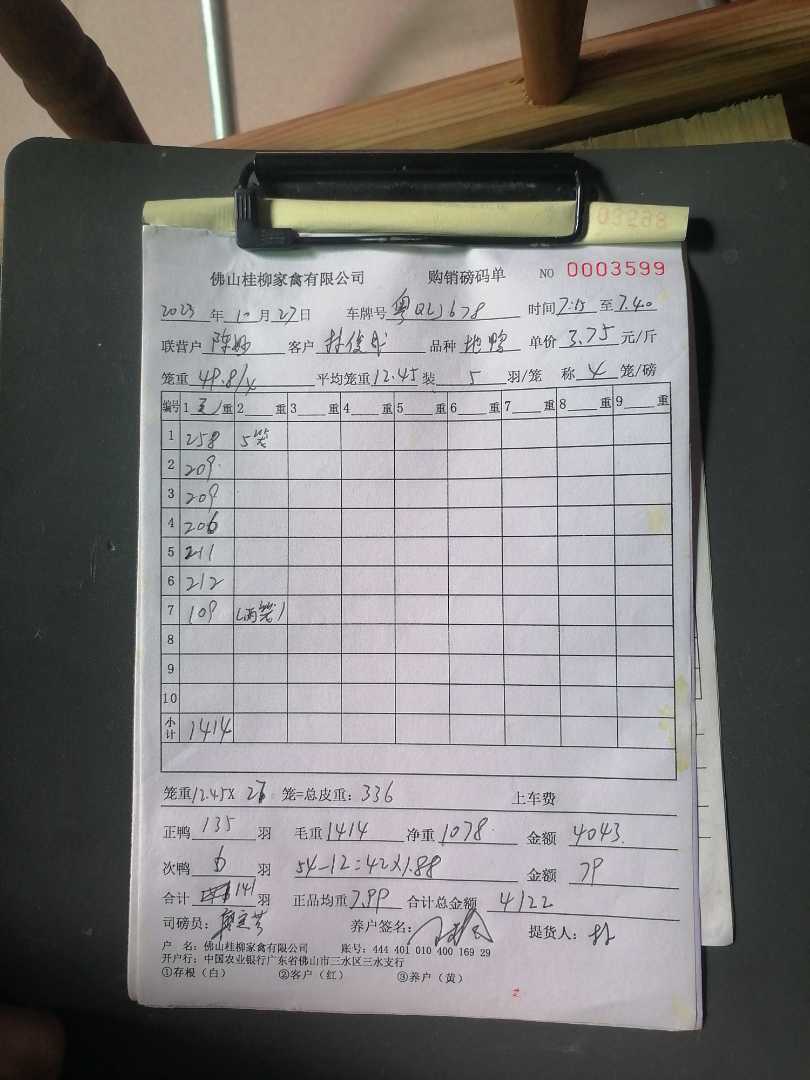 03598
佛山桂柳家禽有限公司 购销磅码单 NO 0003599
2023 年 10 月 27 日 车牌号 粤QLJ678 时间 7:15 至 7.40
联营户 陈 客户 林俊 品种 单价 3.75 元/斤
笼重 49.8/4 平均笼重 12.45 装 5 羽/笼 称 4 笼/磅
编号 1 毛 重 2 重 3 重 4 重 5 重 6 重 7 重 8 重 9 重
1 258 5笼
2 209
3 209
4 206
5 211
6 212
7 109 (两笼)
8
9
10
小计 1414
笼重 12.45 X 27 笼=总皮重: 336 上车费
正鸭 135 羽 毛重 1414 净重 1078 金额 4043
次鸭 6 羽 54-12=42×1.88 金额 79
合计 141 羽 正品均重 7.99 合计总金额 4122
司磅员: 养户签名: 提货人: 林
户 名: 佛山桂柳家禽有限公司 账号: 444 401 010 400 169 29
开户行: 中国农业银行广东省佛山市三水区三水支行
①存根（白） ②客户（红） ③养户（黄）